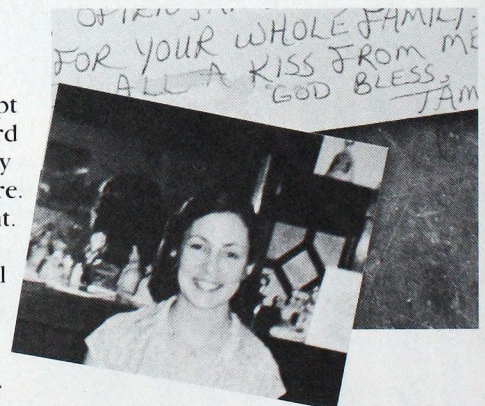 FOR YOUR WHOLE FAMILY.
ALL A KISS FROM ME
GOD BLESS,
JAM
pt
rd
y
re.
t.
l
.